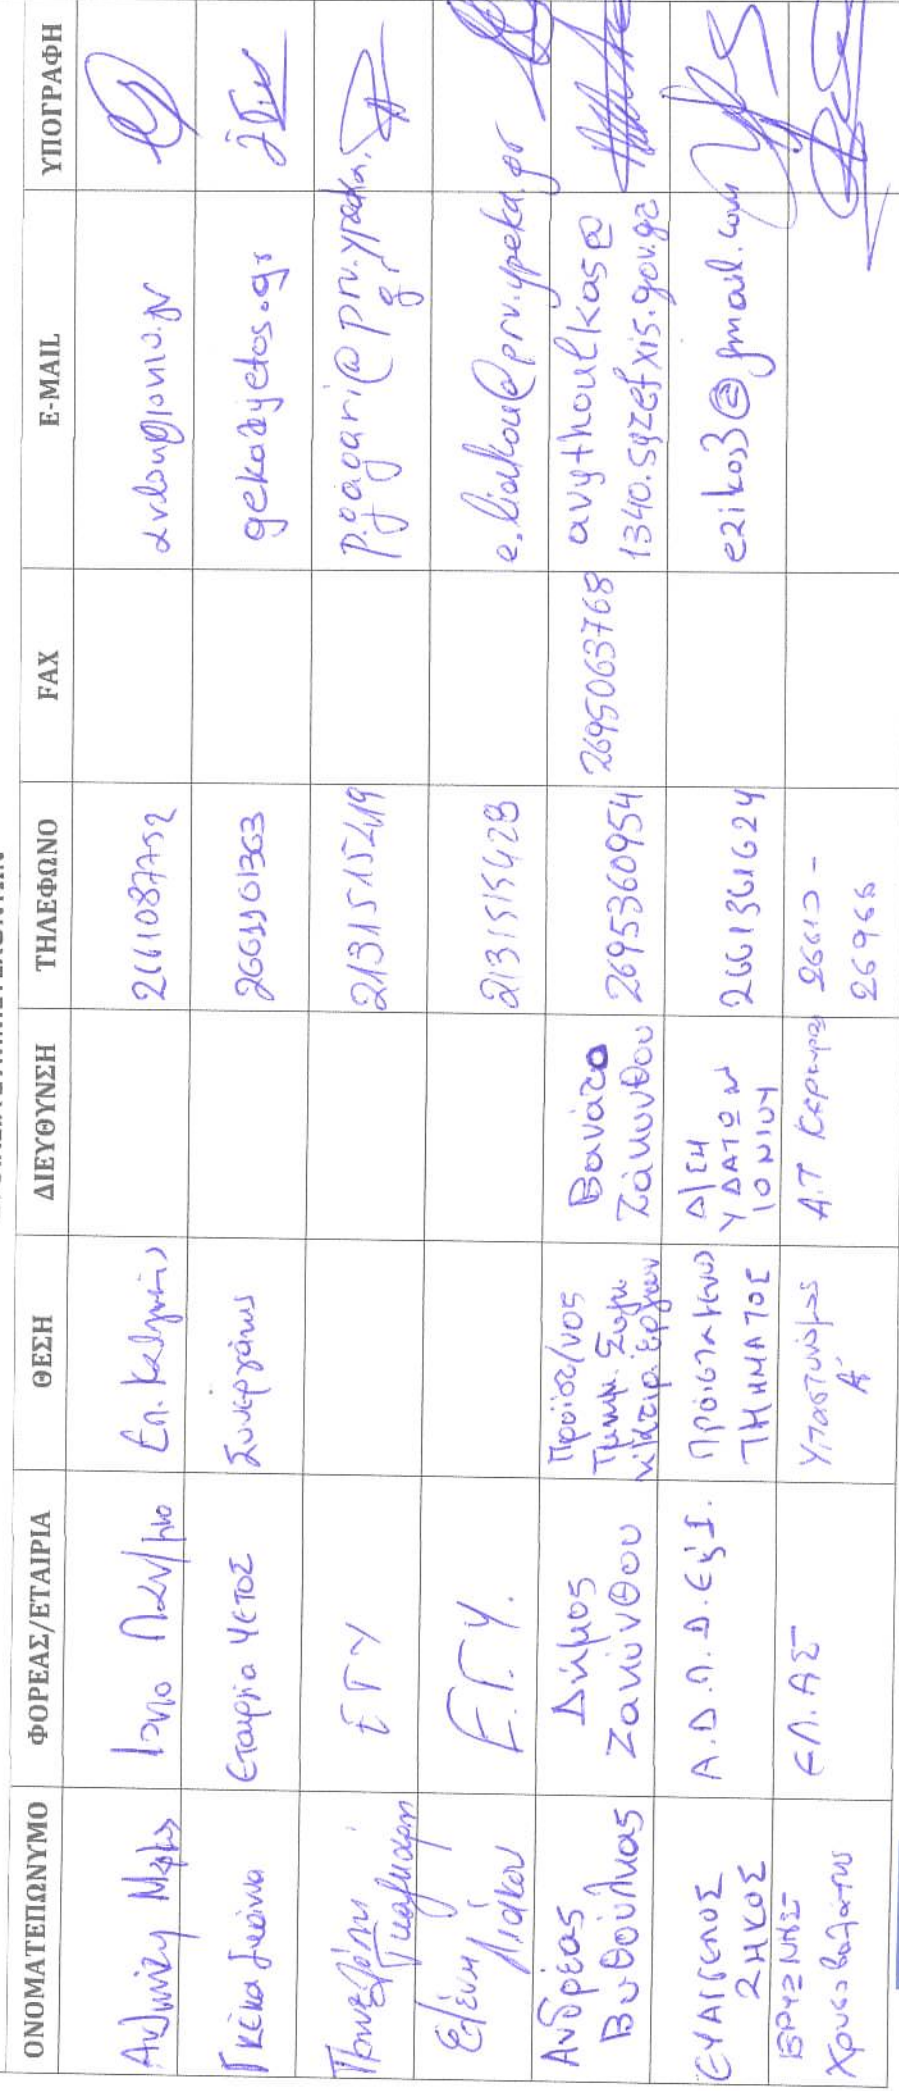 ΟΝΟΜΑΤΕΠΩΝΥΜΟ ΦΟΡΕΑΣ/ΕΤΑΙΡΙΑ ΘΕΣΗ ΔΙΕΥΘΥΝΣΗ ΤΗΛΕΦΩΝΟ FAX E-MAIL ΥΠΟΓΡΑΦΗ
Ιόνιο Παν/μιο Επ. 2661087752
Γκέκα Εταιρία ΥΕΤΟΣ Συνεργάτης 2661101363
ΕΓΥ 2131515419 p.gagari@prv.ypeka.
gr
Ελένη
Λιάκου
Ε.Γ.Υ. 2131515428 e.liakou@prv.ypeka.gr
Ανδρέας
Βυθούλκας
Δήμος
Ζακύνθου
Προϊστ/νος
Τμημ. Συγκ
κ' κτιρ. έργων
Βανάτο
Ζάκυνθου
2695360954 2695063768 avythoulkas@
1340.syzefxis.gov.gr
ΕΥΑΓΓΕΛΟΣ
ΖΗΚΟΣ
Α.Δ.Π.Δ.Ε&Ι. ΠΡΟΙΣΤΑΜΕΝΟΣ
ΤΜΗΜΑΤΟΣ
Δ/ΣΗ
ΥΔΑΤΩΝ
ΙΟΝΙΟΥ
2661361624 ezikos3@gmail.com
ΕΛ.ΑΣ Υπαστυνόμος
Α'
Α.Τ Κέρκυρας 26610-
26966